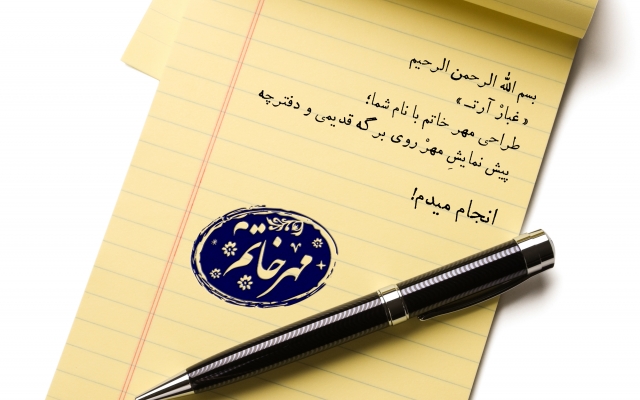 بسم الله الرحمن الرحیم
«غبارْ آرت»
طراحی مهر خاتم با نام شما؛
پیش نمایشِ مهرْ روی برگه قدیمی و دفترچه
انجام میدم!
مهر خاتم